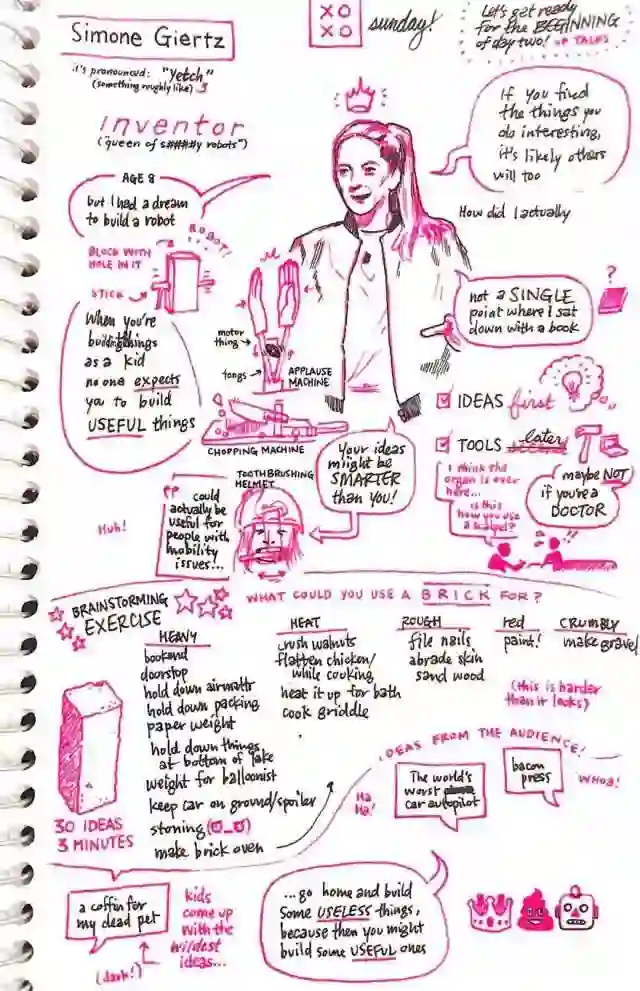 Simone Giertz
XO
XO
sunday!
Let's get ready
for the BEGINNING
of day two! of TALKS
it's pronounced: "Yetch"
(something roughly like)
Inventor
("queen of s####y robots")
If you find
the things you
do interesting,
it's likely others
will too
AGE 8
but I had a dream
to build a robot
How did I actually
ROBOT!
BLOCK WITH
HOLE IN IT
STICK
not a SINGLE
point where I sat
down with a book
?
When you're
building things
as a kid
no one expects
you to build
USEFUL things
motor
thing
tongs
APPLAUSE
MACHINE
CHOPPING MACHINE
IDEAS first
TOOLS later
Your ideas
might be
SMARTER
than you!
I think the
organ is over
here...
is this
how you use
a scalpel?
maybe NOT
if you're a
DOCTOR
TOOTHBRUSHING
HELMET
could
actually be
useful for
people with
mobility
issues...
Huh!
BRAINSTORMING
EXERCISE
WHAT COULD YOU USE A BRICK FOR?
HEAVY
bookend
doorstop
hold down airmattr
hold down packing
paper weight
hold down things
at bottom of lake
weight for balloonist
keep car on ground/spoiler
stoning
make brick oven
HEAT
crush walnuts
flatten chicken/
while cooking
heat it up for bath
cook griddle
ROUGH
file nails
abrade skin
sand wood
red
paint!
CRUMBLY
make gravel
(this is harder
than it looks)
30 IDEAS
3 MINUTES
IDEAS FROM THE AUDIENCE!
Ha
Ha!
The world's
worst
car autopilot
bacon
press
WHOA!
a coffin for
my dead pet
(dark!)
kids
come up
with the
wildest
ideas...
...go home and build
some USELESS things,
because then you might
build some USEFUL ones